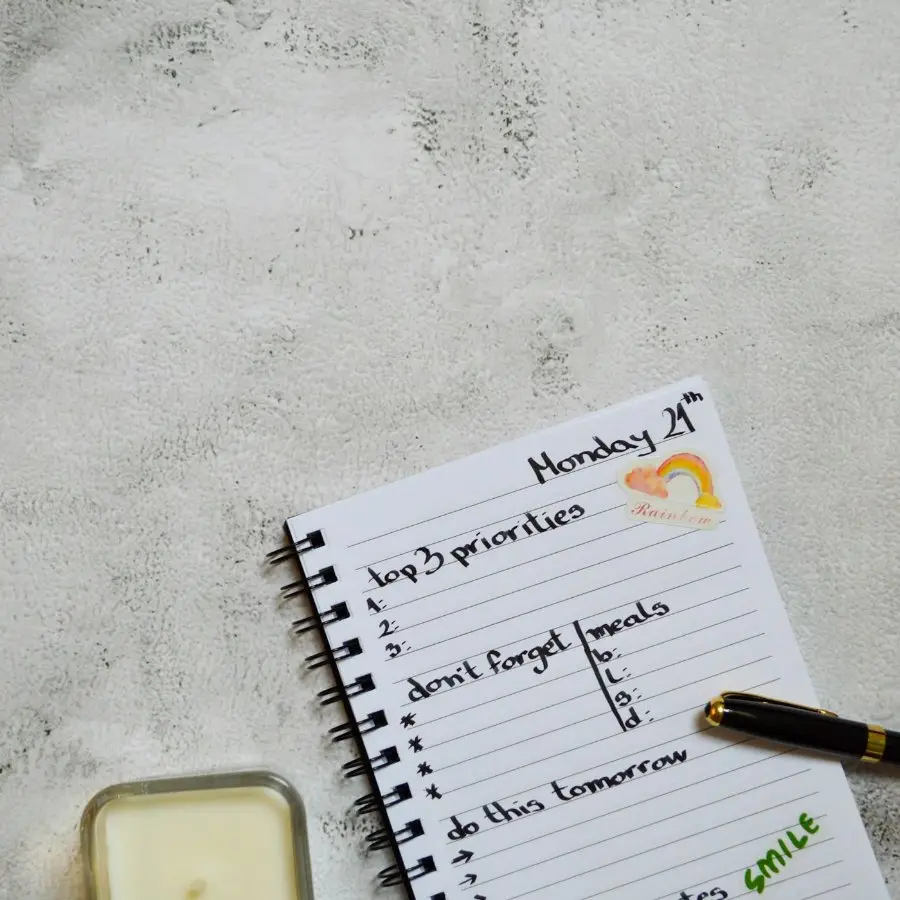 Monday 21th
Rainbow
top 3 priorities
1:
2:
3:
don't forget
*
*
*
*
meals
b:
L:
s:
d:
do this tomorrow
→
→
SMILE